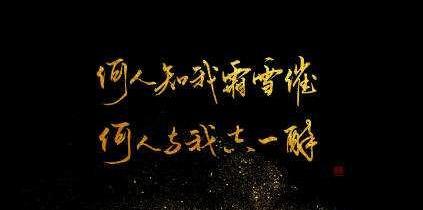 何人知我霜雪催
何人与我共一醉